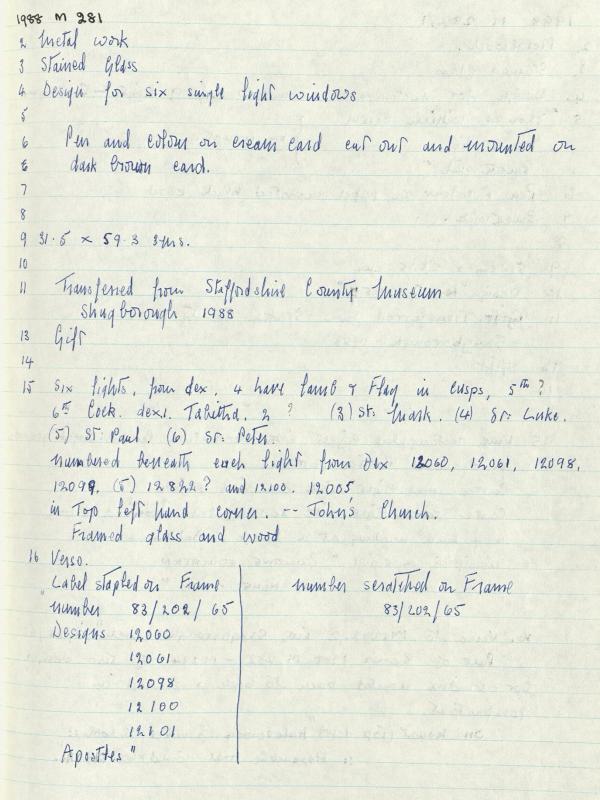 1988 M 281
2 Metal work
3 Stained Glass
4 Design for six single light windows
5
6 Pen and colour on cream card cut out and mounted on
6 dark brown card.
7
8
9 31.5 x 59.3 cms.
10
11 Transferred from Staffordshire County Museum
Shugborough 1988
13 Gift
14
15 Six lights, from dex. 4 have lamb & Flag in cusps, 5th ?
6th Cock. dex 1. Tabitha. 2 ? (3) St. Mark. (4) St. Luke.
(5) St Paul. (6) St. Peter.
numbered beneath each light from Dex 12060, 12061, 12098,
12099. (5) 12822? and 12100. 12005
in Top left hand corner. -- John's Church.
Framed glass and wood
16 Verso.
"Label stapled on Frame
number 83/202/65
Designs 12060
12061
12098
12100
12101
Apostles"
number scratched on Frame
83/202/65